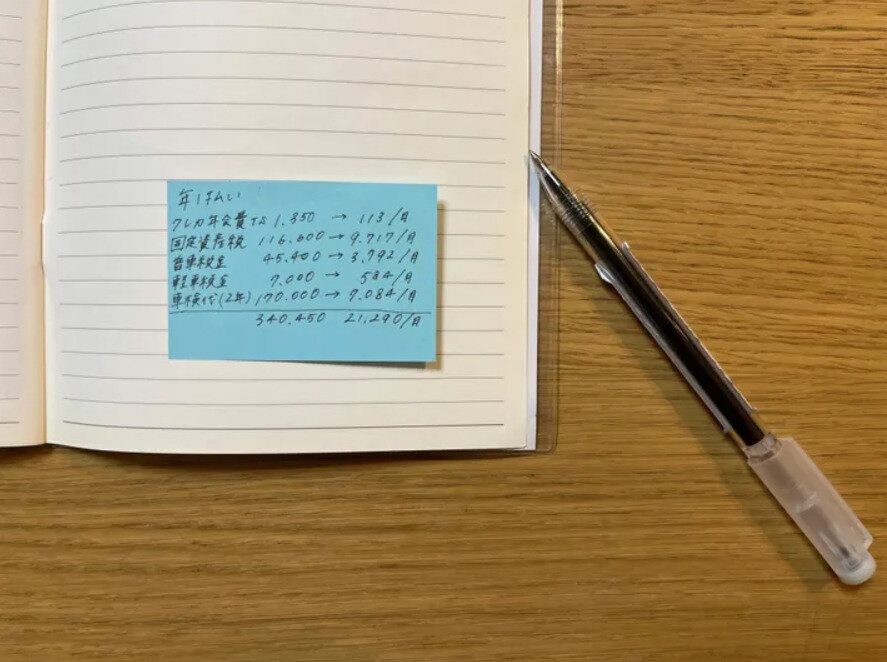 年1払い
クレカ年会費TS 1.350 → 113/月
固定資産税 116.600→9.717/月
普車税金 45.500→3.792/月
軽車税金 7.000→ 584/月
車検代(2年) 170.000→7.084/月
340.450 21.290/月